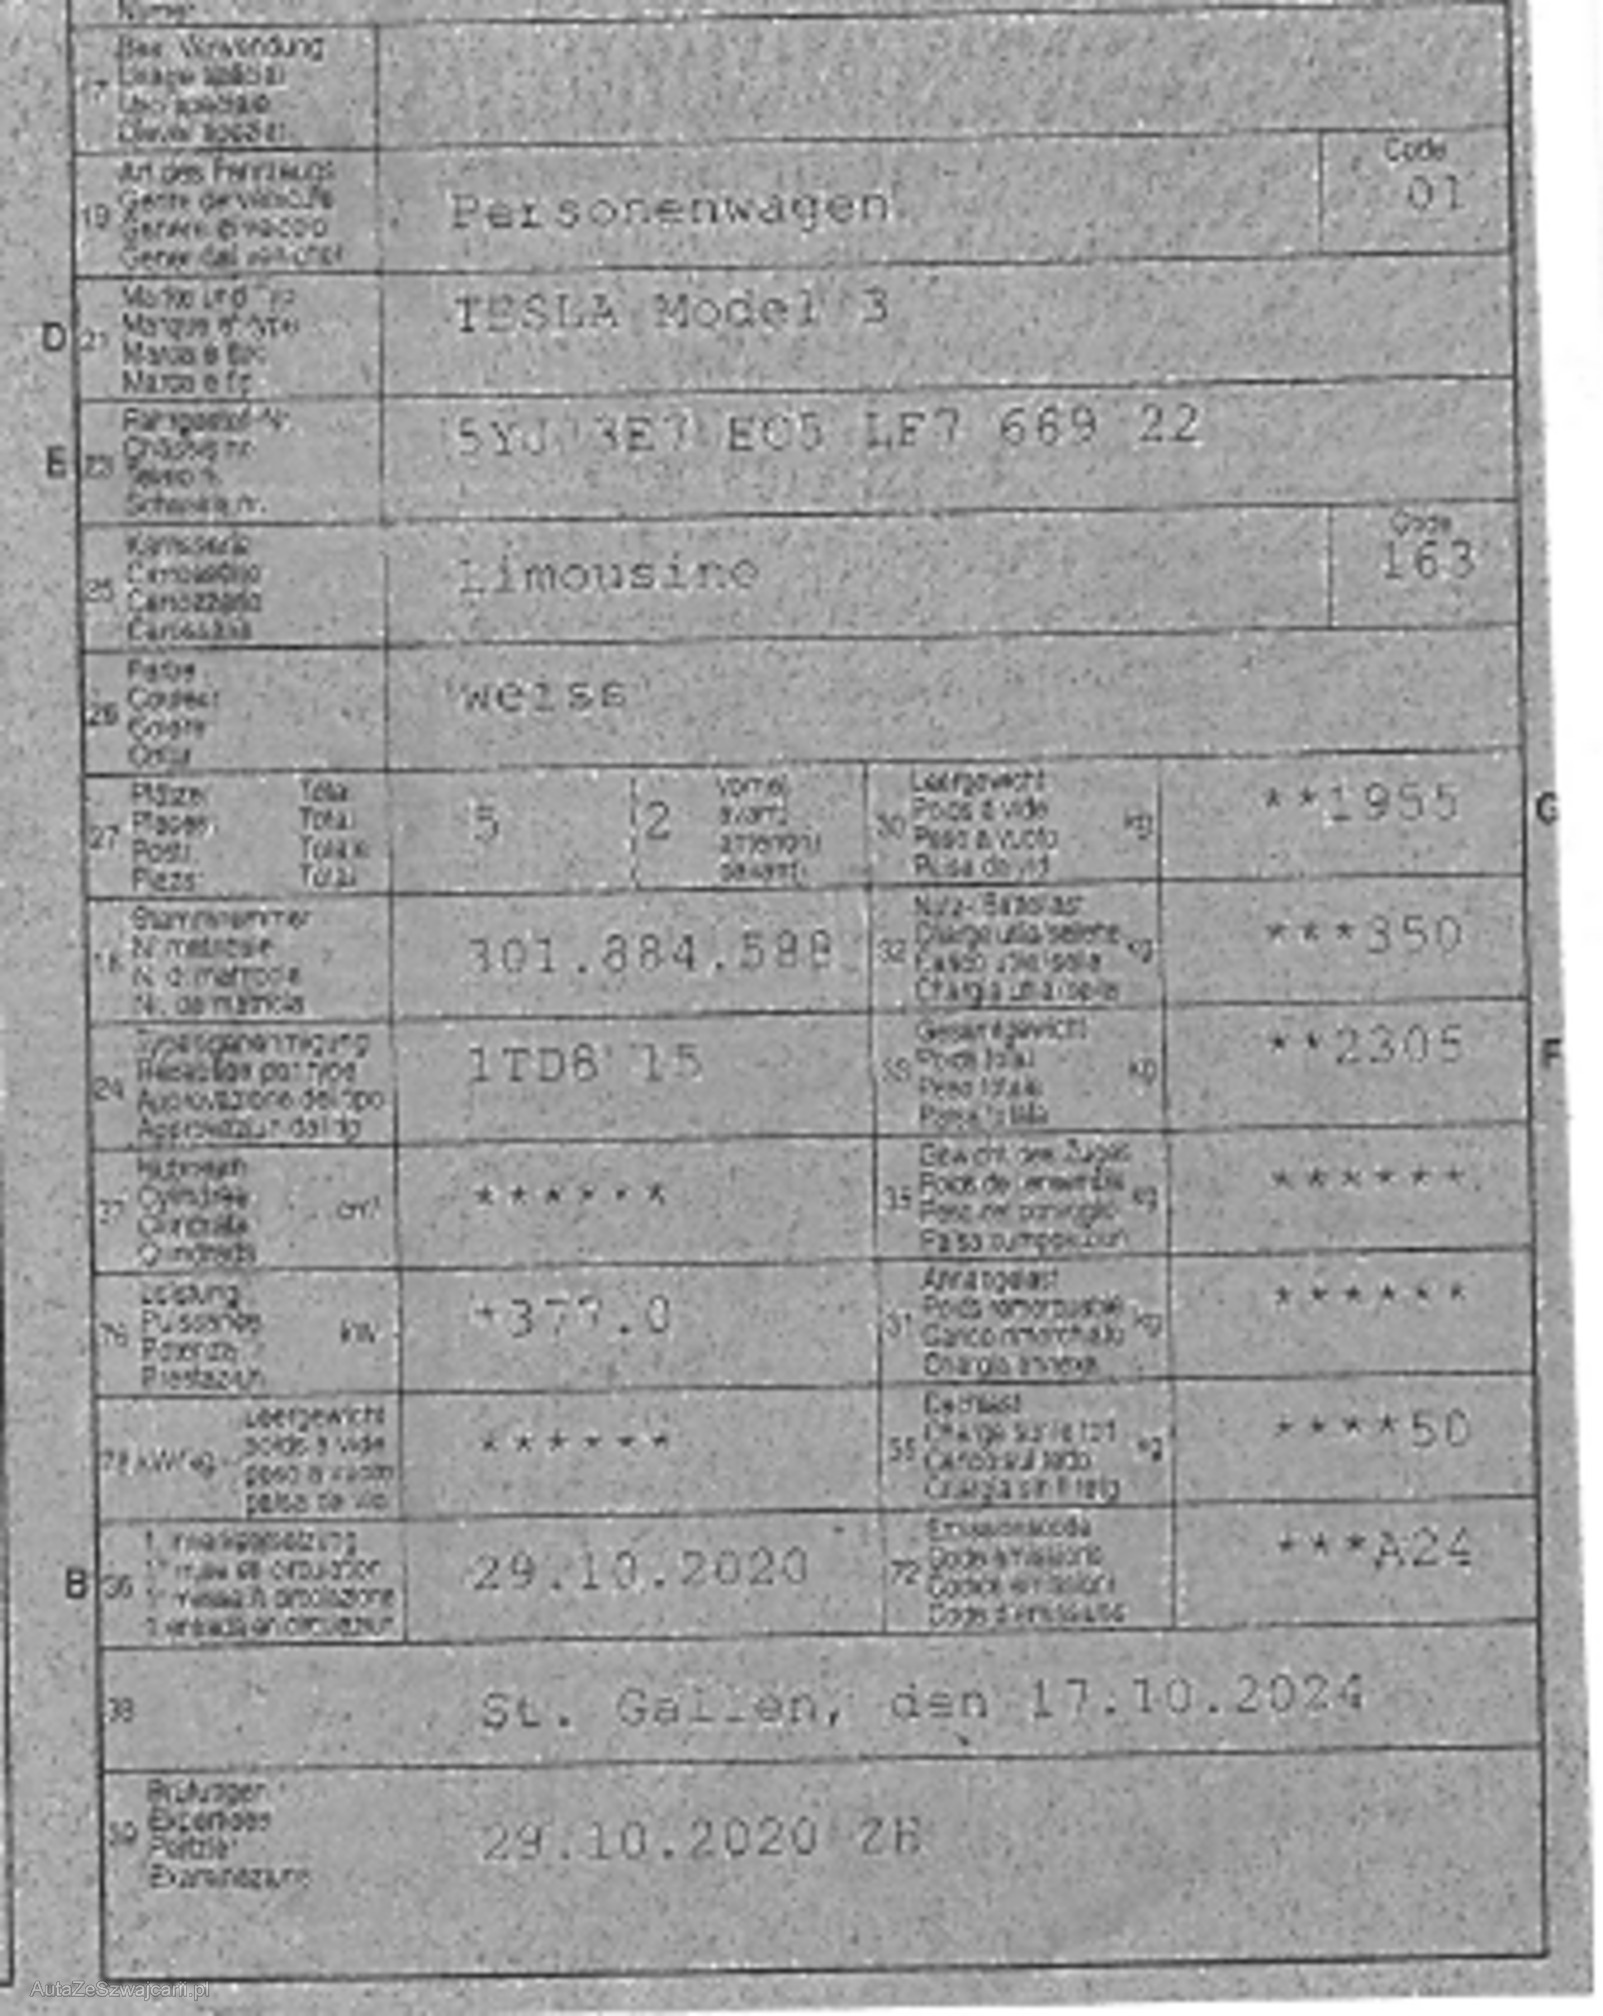 Name
Bes. Verwendung
Usage spécial
Uso speciale
Diever spezial
Art des Fahrzeugs
Genre de véhicule
Genere di veicolo
Gener dal vehichel
19
Personenwagen
Code
01
D
21
Marke und Typ
Marque et type
Marca e tipo
Marca e tip
TESLA Model 3
E
23
Fahrgestell-Nr.
Châssis nr.
Telaio n.
Schassis nr.
5YJ 3E7 EC5 LF7 669 22
25
Karosserie
Carrosserie
Carrozzeria
Carossaria
Limousine
Code
163
26
Farbe
Couleur
Colore
Colur
weiss
27
Plätze: Total
Places: Total
Posti: Totale
Plazs: Total
5
2
vorne
avant
anteriori
davant
30
Leergewicht
Poids à vide
Peso a vuoto
Paisa da vid
kg
**1955
G
18
Stammnummer
N° matricule
N. di matricola
Nr. da matricla
301.884.588
32
Nutz-/Sattellast
Charge utile/sellette
Carico utile/sella
Chargia utila/sella
kg
***350
24
Typengenehmigung
Réception par type
Approvazione del tipo
Approvaziun dal tip
1TD8 15
33
Gesamtgewicht
Poids total
Peso totale
Paisa totala
kg
**2305
F
37
Hubraum
Cylindrée
Cilindrata
Cilindrada
cm³
******
35
Gewicht des Zuges
Poids de l'ensemble
Peso del convoglio
Paisa cumposiziun
kg
******
76
Leistung
Puissance
Potenza
Prestaziun
kW
*377.0
31
Anhängelast
Poids remorquable
Carico rimorchiato
Chargia annexa
kg
******
78 kW/kg
Leergewicht
poids à vide
peso a vuoto
paisa da vid
******
55
Dachlast
Charge sur le toit
Carico sul tetto
Chargia sin il tetg
kg
****50
B
36
1. Inverkehrsetzung
1re mise en circulation
1a messa in circolazione
1. entrada en circulaziun
29.10.2020
72
Emissionscode
Code émissions
Codice emissioni
Code d'emissiuns
***A24
38
St. Gallen, den 17.10.2024
39
Prüfungen
Expertises
Perizie
Examinaziuns
29.10.2020 ZH
AutaZeSzwajcarii.pl